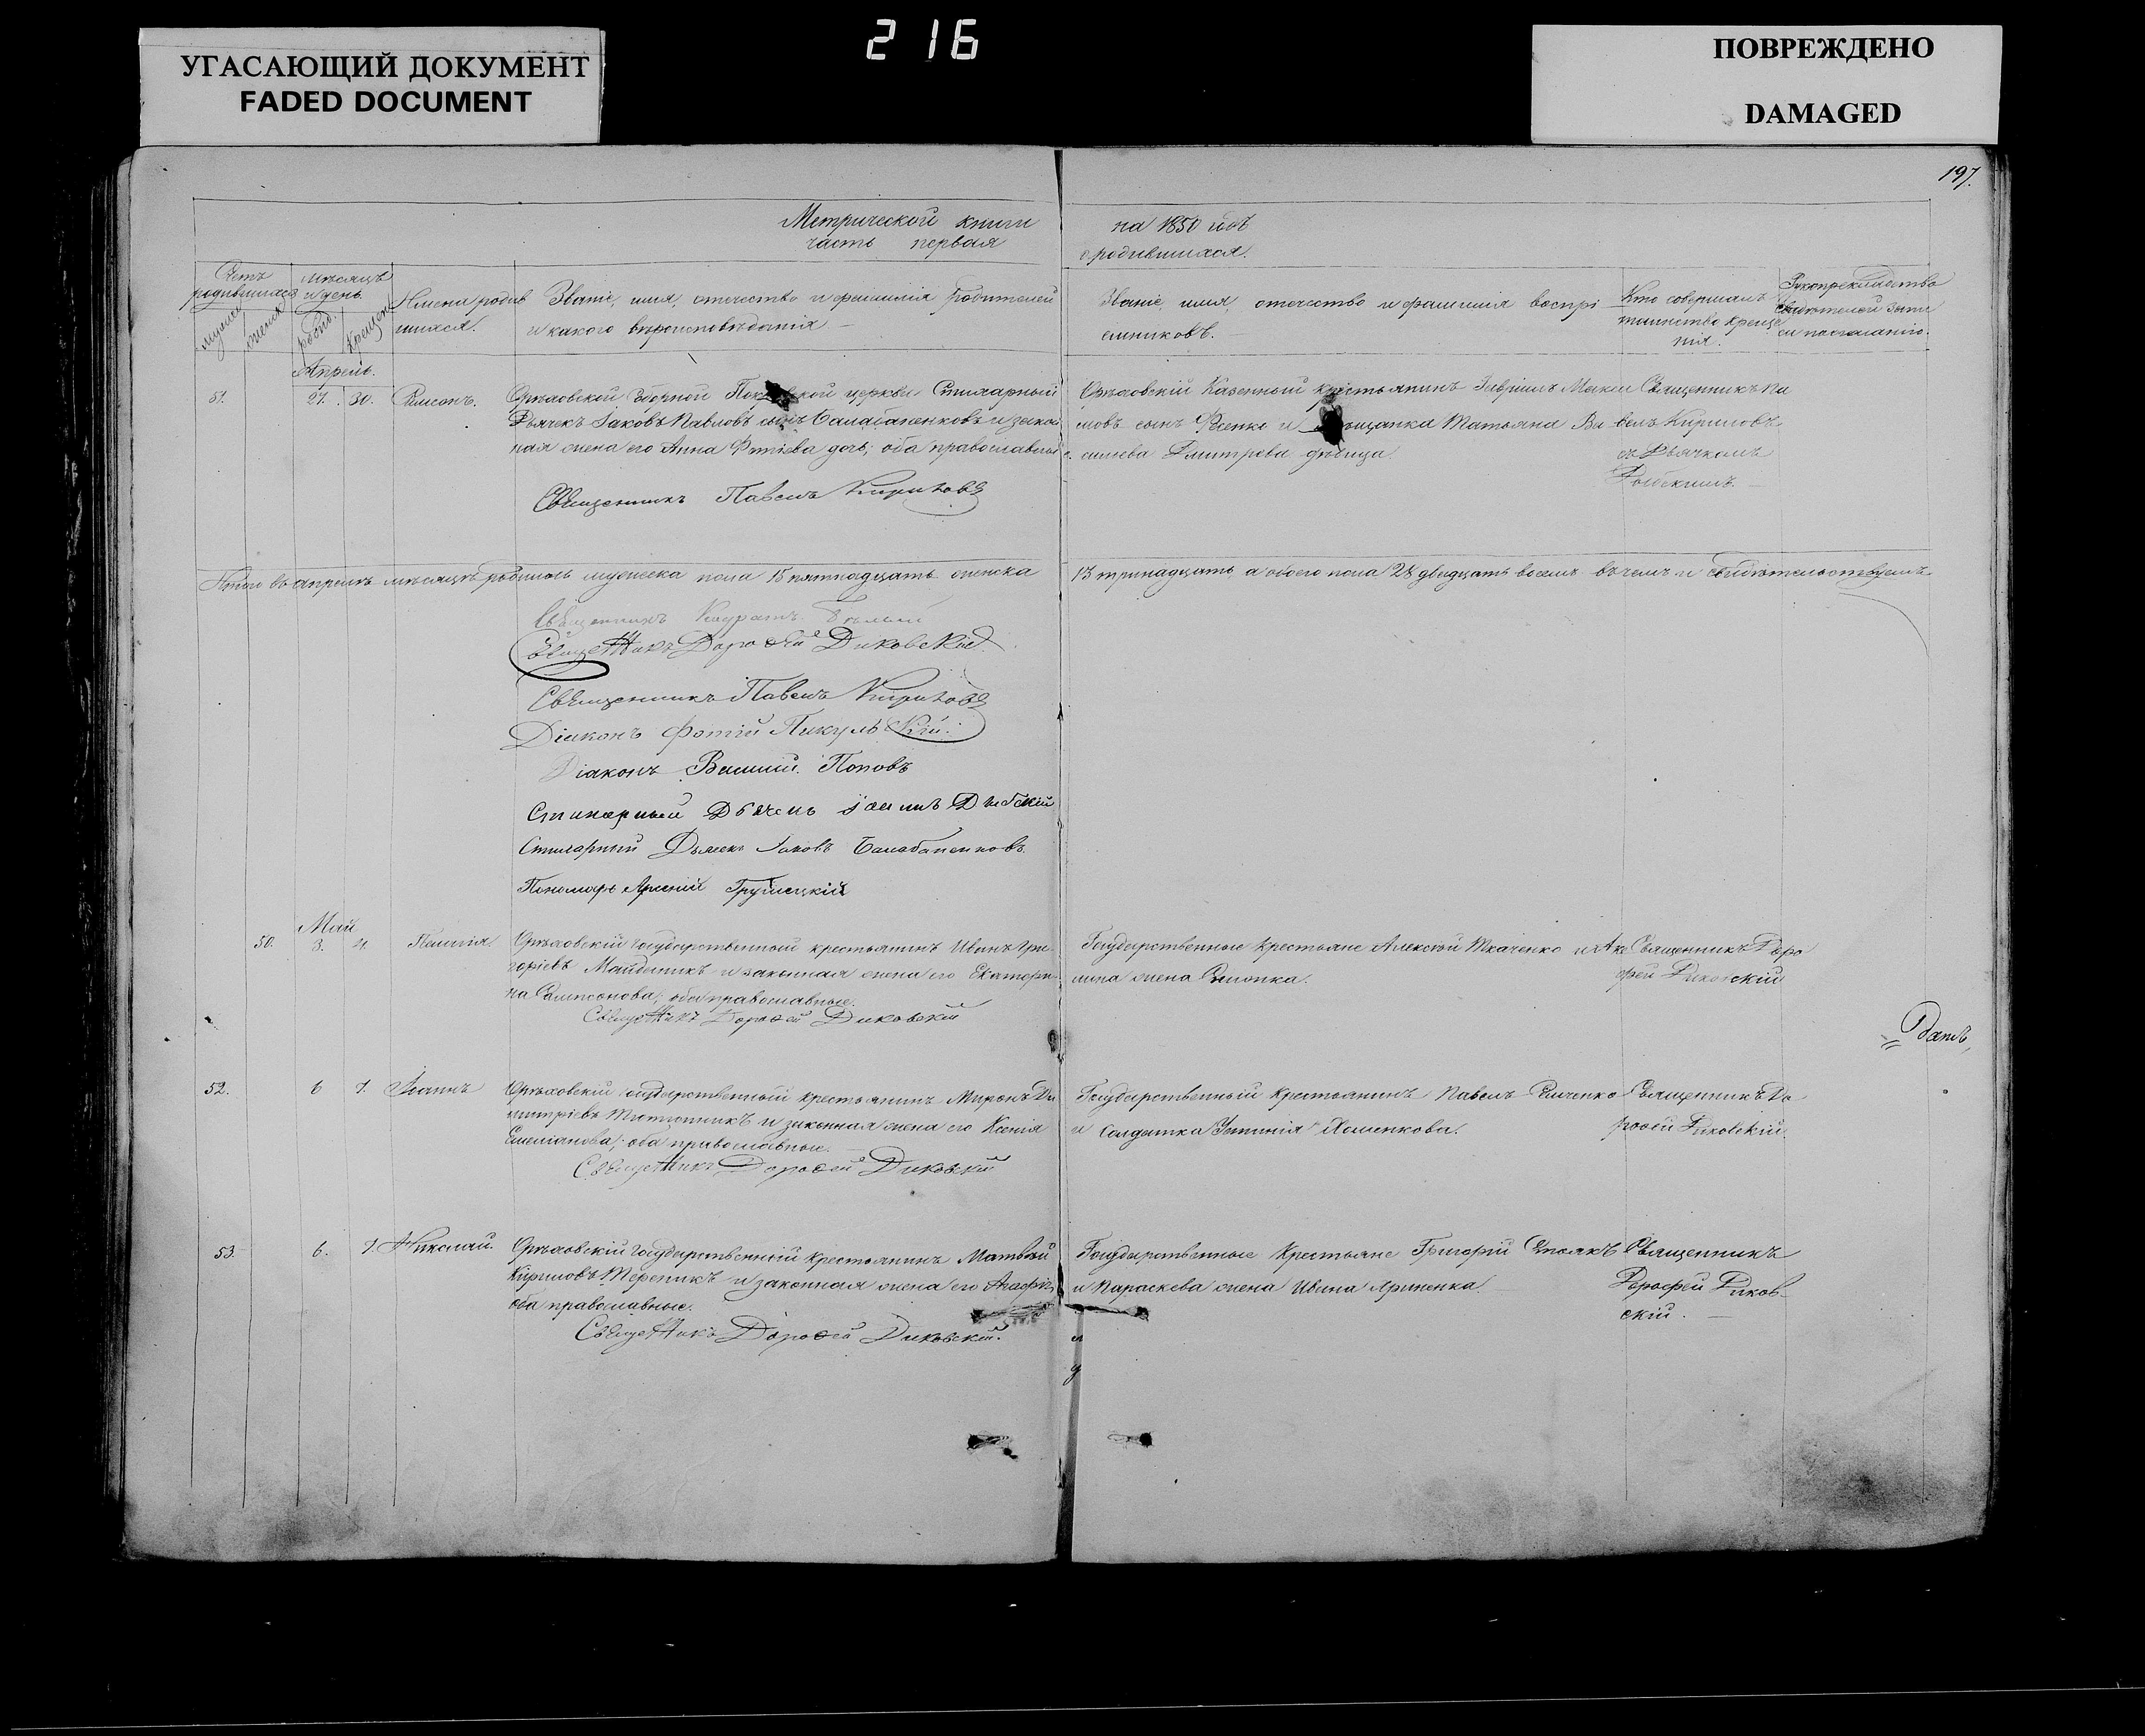 УГАСАЮЩИЙ ДОКУМЕНТ
FADED DOCUMENT
216
ПОВРЕЖДЕНО
DAMAGED
197.
Метрической книги
часть первая
на 1850 годъ
о родившихся.
Счетъ
родившихся
мужеска
женска
Мѣсяцъ
и день.
рожд.
крещен.
Имена родив
шихся.
Званіе, имя, отечество и фамилія родителей
и какого вѣроисповѣданія
Званіе, имя, отечество и фамилія воспрі
емниковъ.
Кто совершалъ
таинство креще
нія.
Рукоприкладство
свидѣтелей запи
си по желанію.
Апрель.
51.
27. 30.
Самсонъ.
Орѣховской Соборной церкви Стихарный
Дьячекъ Іаковъ Павловъ сынъ Балабаненковъ и закон
ная жена его Анна Фотіева дочь; оба православные.
Священникъ Павелъ Кириловъ
Орѣховскій Казенный крестьянинъ Гавріилъ Макси
мовъ сынъ и Татьяна Ва
силіева Дмитрева дѣвица
Священникъ Па
велъ Кириловъ
съ Дьячкомъ
Итого въ апрелѣ мѣсяцѣ родилось мужеска пола 15 пятнадцать женска
13 тринадцать а обоего пола 28 двадцать восемь въ чемъ и свидѣтельствуемъ
Священникъ
Священникъ Дорофей Диковскій
Священникъ Павелъ Кириловъ
Діаконъ Фотій Пикульскій.
Діаконъ Василій Поповъ
Стихарный Дьячекъ
Стихарный Дьячекъ Іаковъ Балабаненковъ
Пономарь Арсеній Грушецкій
Май
50.
3. 4.
Пелагія.
Орѣховскій Государственный крестьянинъ Иванъ Гри
горіевъ Майданикъ и законная жена его Екатери
на Сампсонова; оба православные.
Священникъ Дорофей Диковскій
Государственные Крестьяне Алексѣй Ткаченко и Аке
лина жена
Священникъ Доро
фей Диковскій
52.
6 7.
Іоаннъ
Орѣховскій государственный крестьянинъ Миронъ Ди
митріевъ Тютюнникъ и законная жена его Ксенія
Емеліанова; оба православные.
Священникъ Дорофей Диковскій
Государственный Крестьянинъ Павелъ
и Солдатка Устинія Хоменкова.
Священникъ До
рофей Диковскій.
53.
6. 7.
Николай.
Орѣховскій Государственный крестьянинъ Матвѣй
Кириловъ и законная жена его Агафія
оба православные.
Священникъ Дорофей Диковскій.
Государственные Крестьяне Григорій
и Параскева жена Ивана
Священникъ
Дорофей Диков
скій.